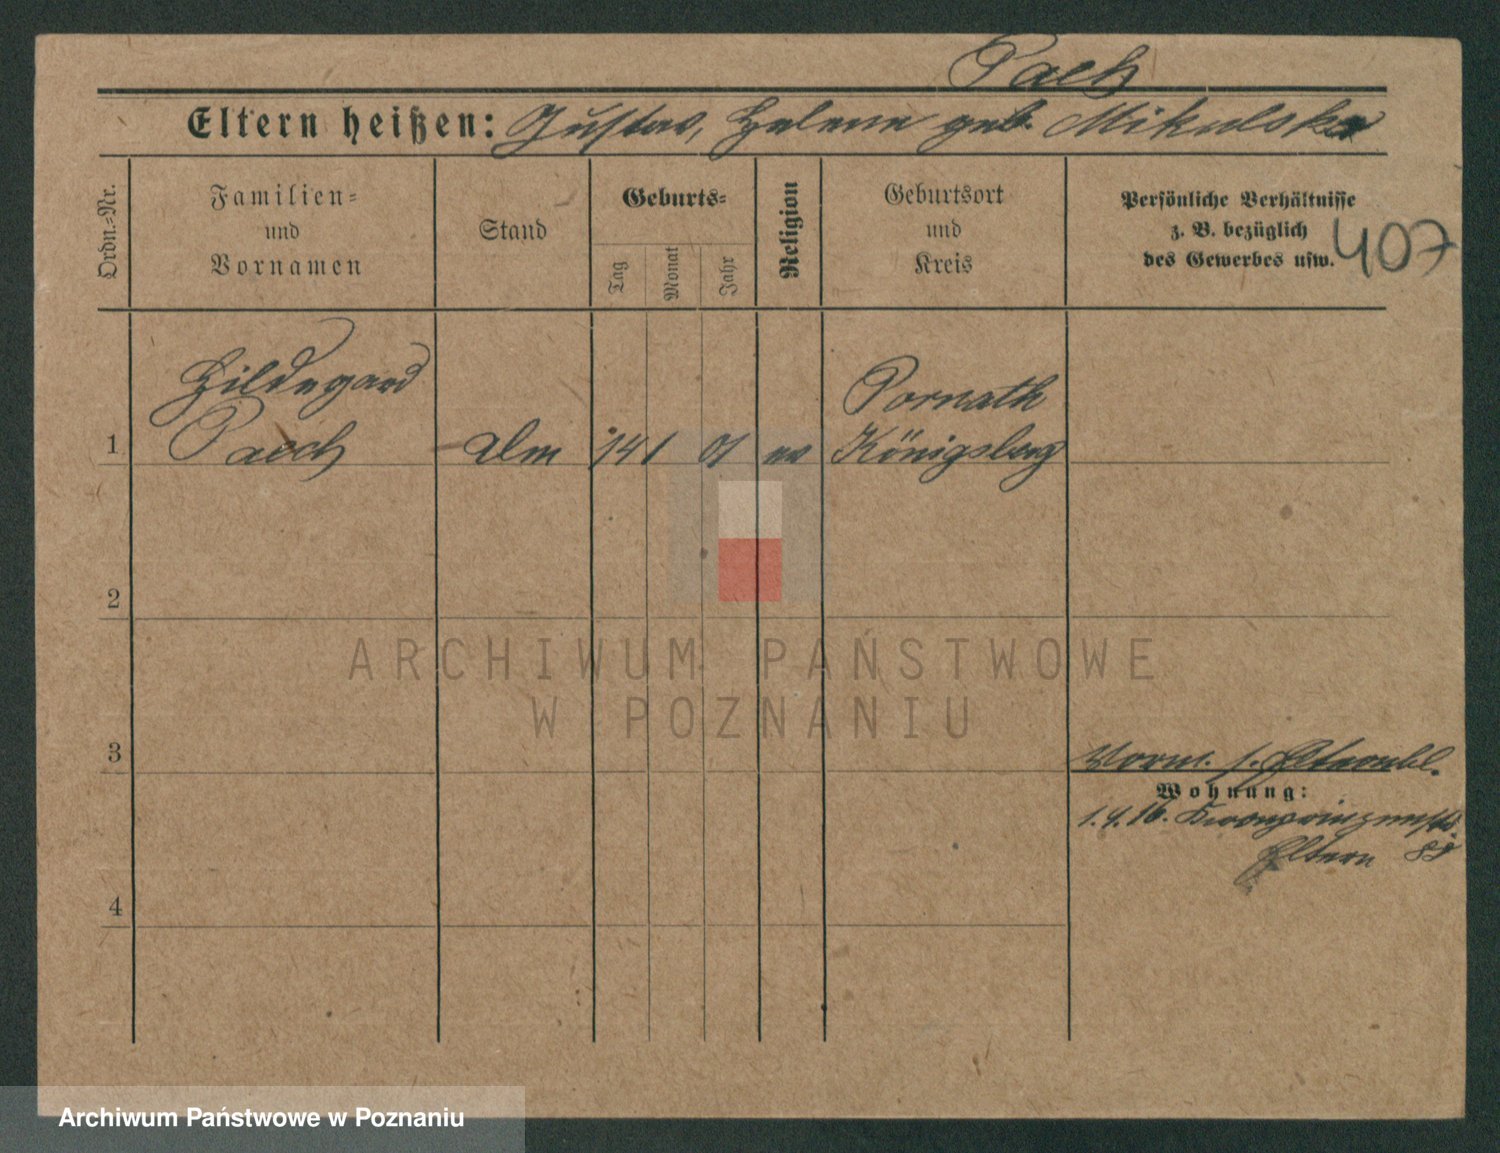 Paech
Eltern heißen: Gustav, Helene geb. Mikulska
Ordn.=Nr.
Familien=
und
Vornamen
Stand
Geburts=
Tag
Monat
Jahr
Religion
Geburtsort
und
Kreis
Persönliche Verhältnisse
z. B. bezüglich
des Gewerbes usw.
407
Hildegard
Paech
1
14 1 01 ev
Königsberg
2
ARCHIWUM PAŃSTWOWE
W POZNANIU
3
Vorm. s.
Wohnung:
1.4.16. Kronprinzenstr.
Eltern 88
4
Archiwum Państwowe w Poznaniu